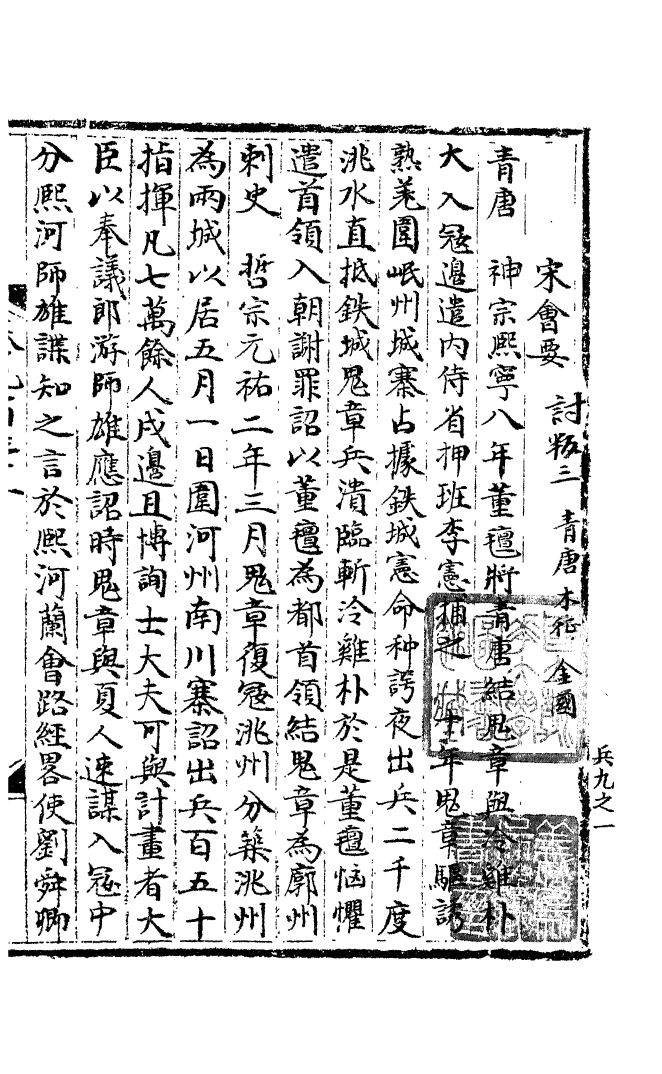 兵九之一
宋會要 討叛三 青唐 木征 金國
青唐 神宗熙寧八年董氊將青唐結鬼章與冷雞朴
大入冦邊遣内侍省押班李憲捕之 十年鬼章驅誘
熟羌圍岷州城寨占據鉄城憲命种諤夜出兵二千度
洮水直抵鉄城鬼章兵潰臨斬冷雞朴於是董氊惱懼
遣首領入朝謝罪詔以董氊為都首領結鬼章為廓州
刺史 哲宗元祐二年三月鬼章復冦洮州分築洮州
為兩城以居五月一日圍河州南川寨詔出兵百五十
指揮凡七萬餘人戍邊且博詢士大夫可與計畫者大
臣以奉議郎游師雄應詔時鬼章與夏人連謀入冦中
分熙河師雄諜知之言於熙河蘭會路經畧使劉舜卿